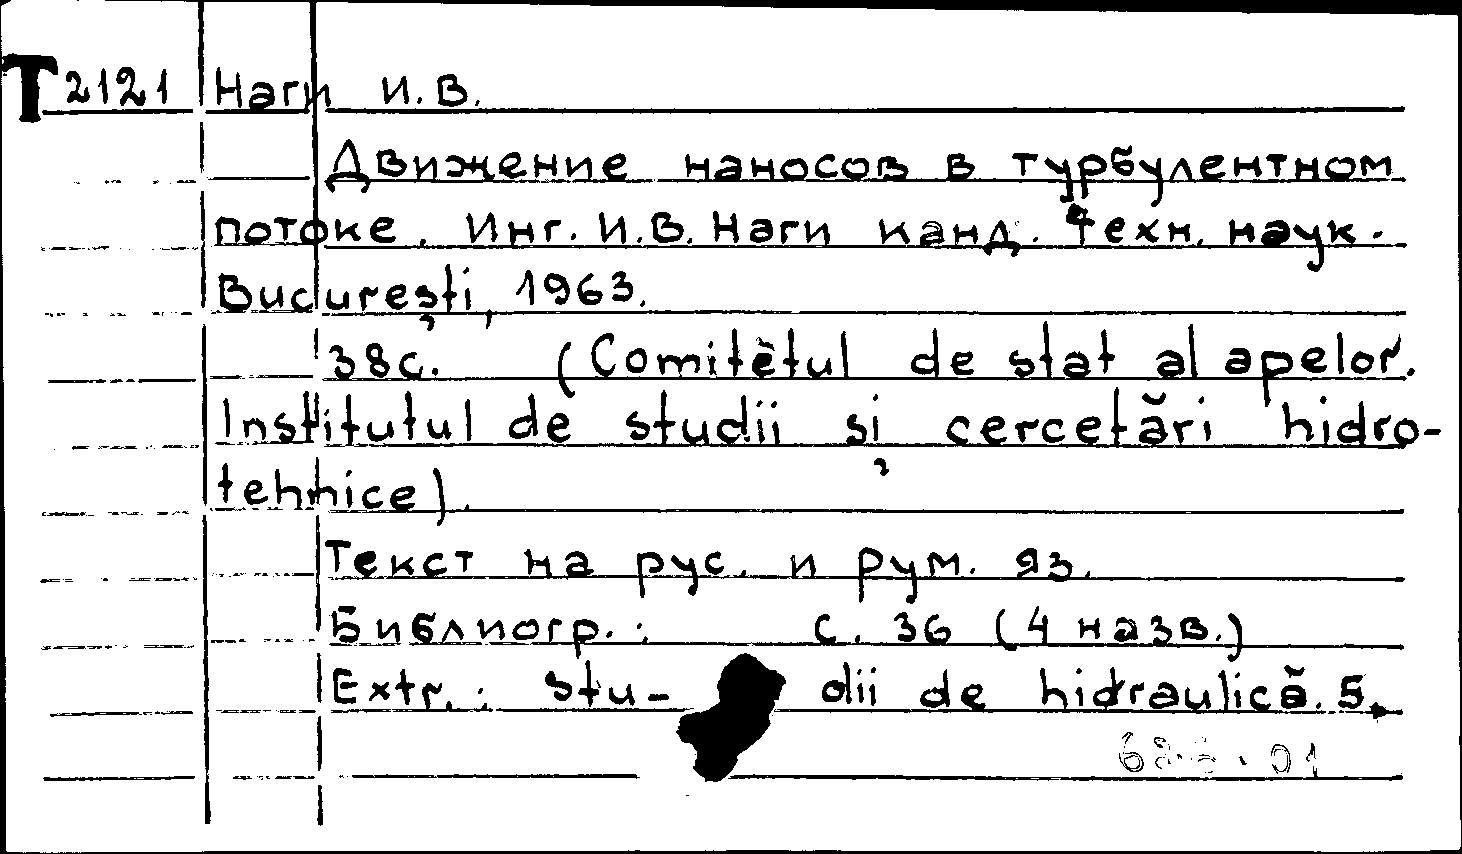 Т2121 Наги И.В.
Движение наносов в турбулентном
потоке. Инг. И.В. Наги канд. техн. наук.
București, 1963.
38с. (Comitetul de stat al apelor.
Institutul de studii și cercetări hidro-
tehnice).
Текст на рус. и рум. яз.
Библиогр.: с. 36 (4 назв.)
Extr.: stu- dii de hidraulică. 5.